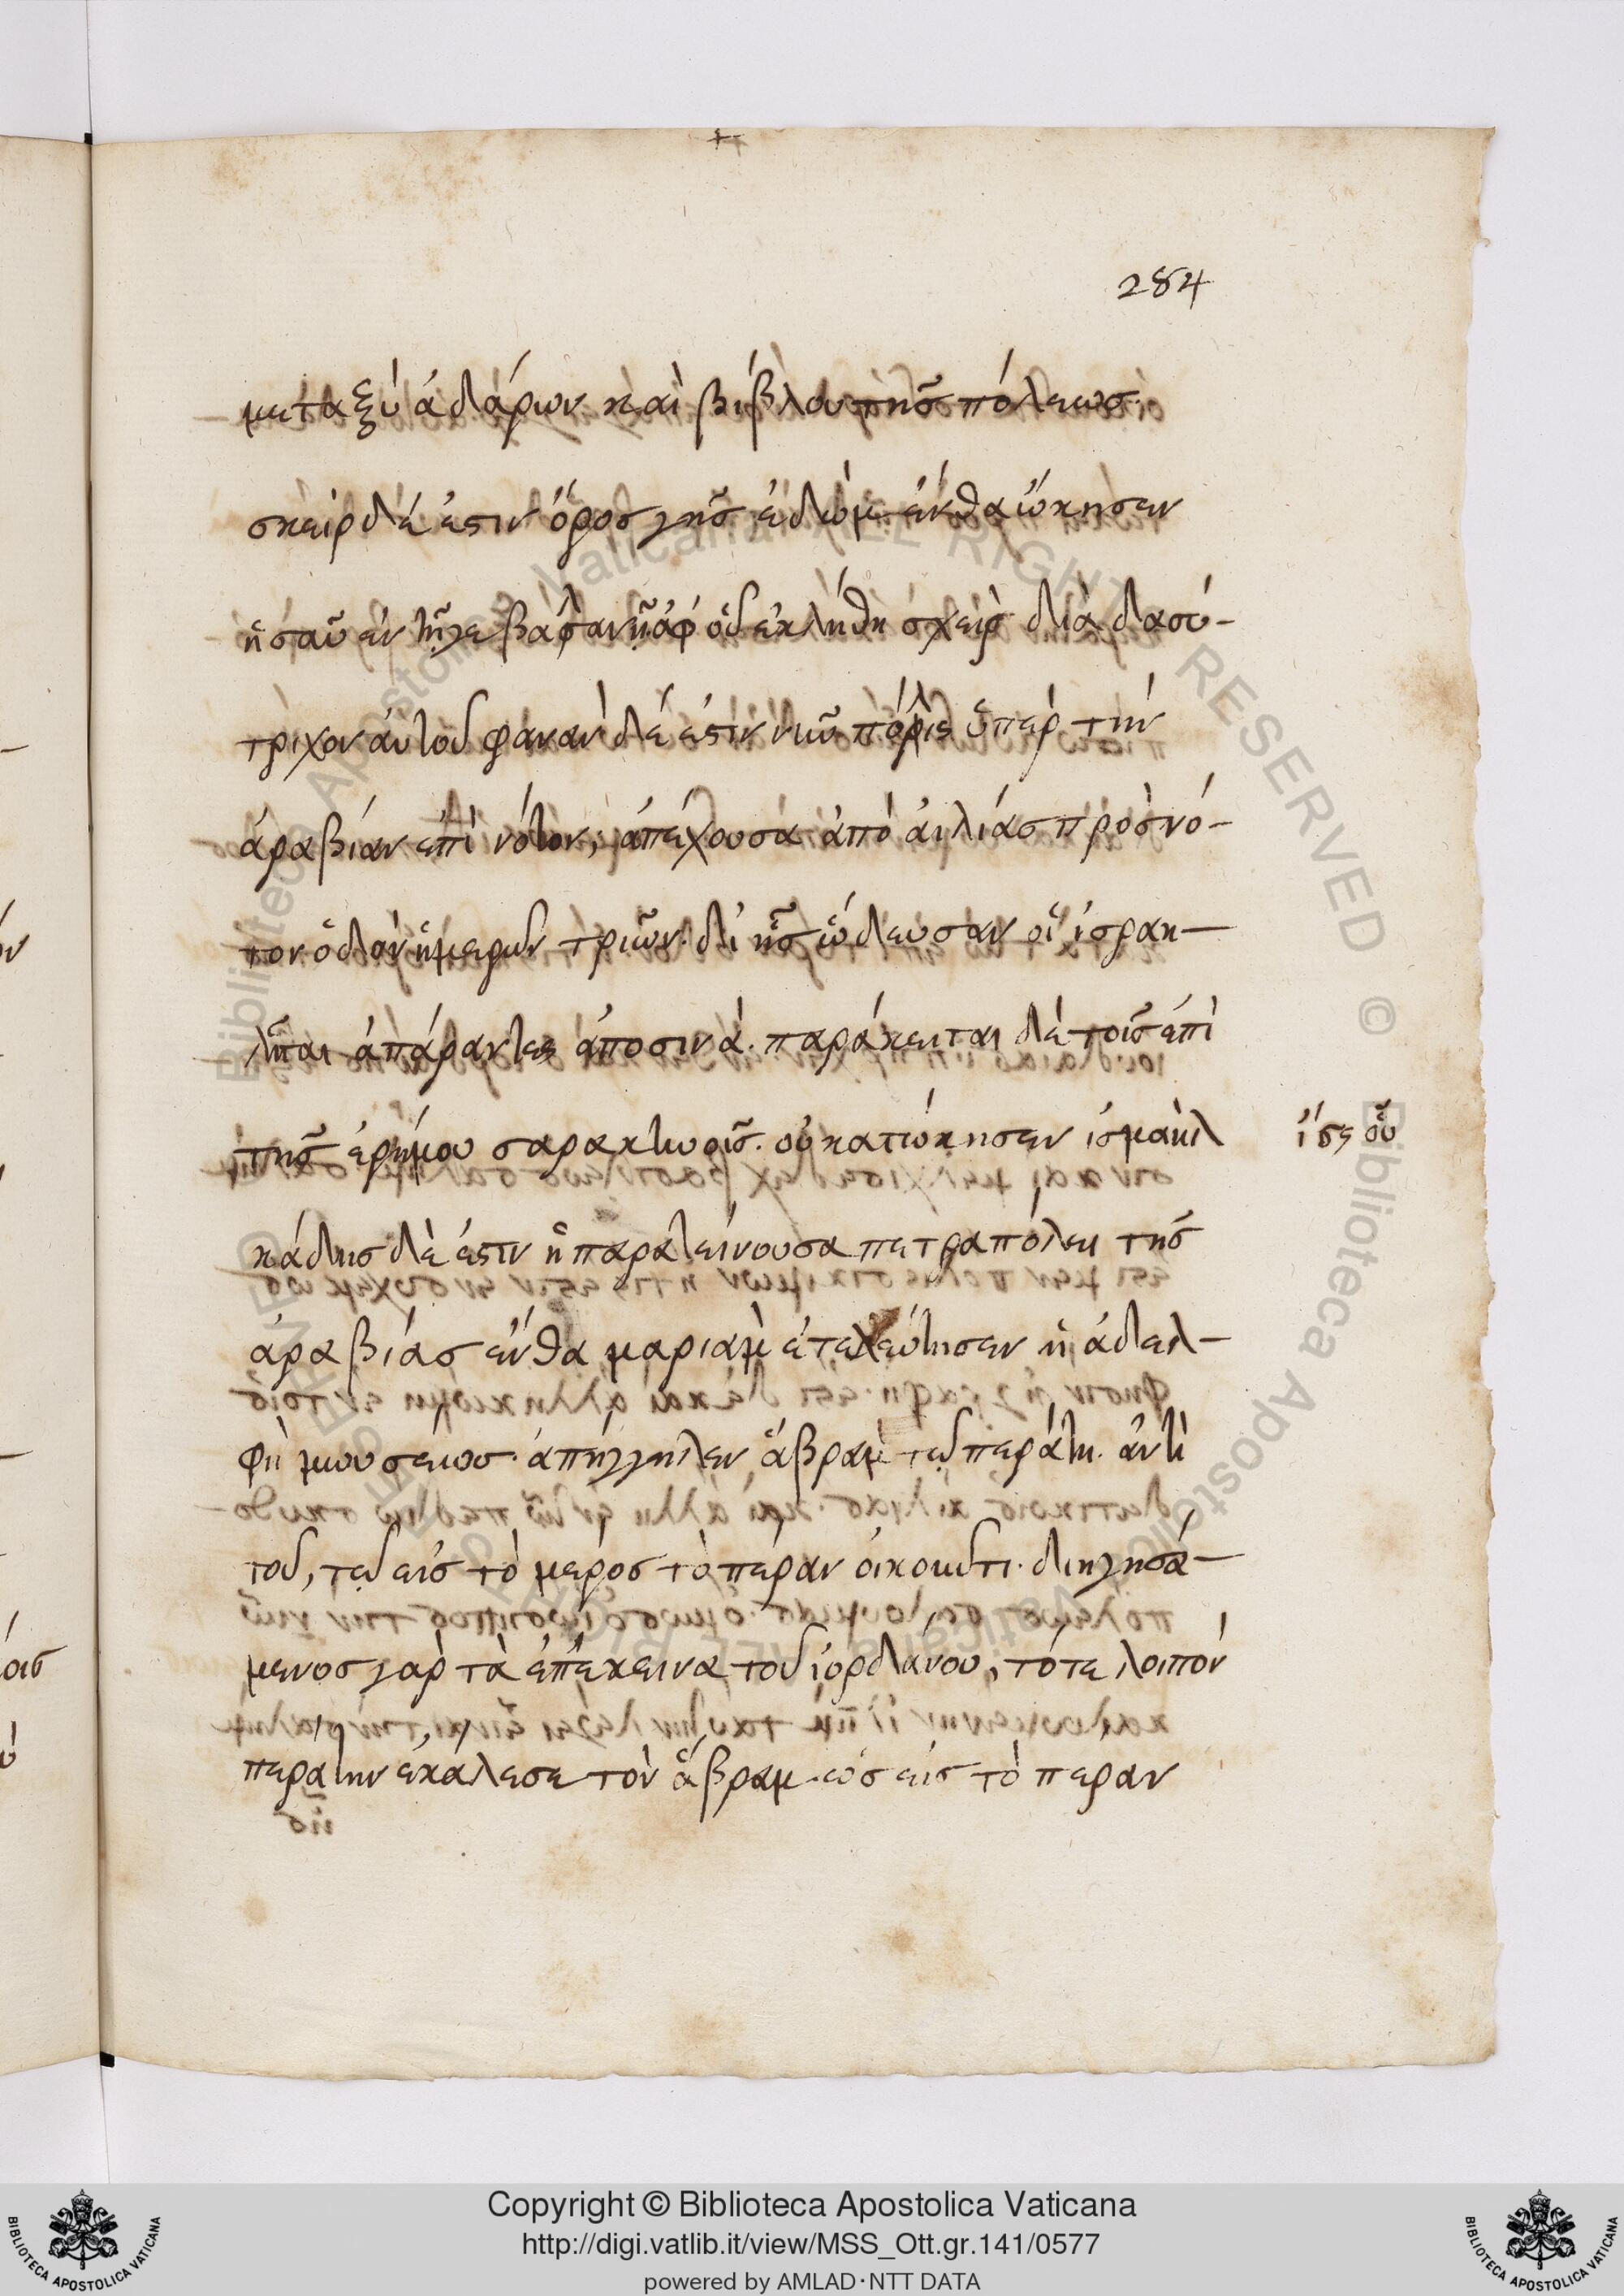 284
μεταξὺ ἀδάρων καὶ βίβλου τῆς πόλεως.
σηείρ δέ ἐστιν ὄρος γῆς ἐδώμ ἔνθα ὤκησεν
ἡσαῦ ἐν τῆ γεβαλανῆ ἀφ' οὗ ἐκλήθη σηείρ διὰ δασύ-
τριχον αὐτοῦ φαρὰν δέ ἐστιν νῦν πόλις ὑπὲρ τὴν
ἀραβίαν ἐπὶ νότον, ἀπέχουσα ἀπὸ αἰλίας πρὸς νό-
τον ὁδὸν ἡμερῶν τριῶν. δι' ἧς ὥδευσαν οἱ ἰσραη-
λῖται ἀπάραντες ἀπὸ σινά. παράκειται δὲ τοῖς ἐπὶ
τῆς ἐρήμου σαρακηνοῖς. οὐ κατώκησεν ἰσμαήλ
ἴσ ς οὗ
κάδης δὲ ἐστιν ἡ παρατείνουσα πέτρα πόλει τῆς
ἀραβίας ἔνθα μαριὰμ ἐτελεύτησεν ἡ ἀδελ-
φὴ μωυσέως. ἀπήγγειλεν ἄβραμ τῶ περάτη. ἀντὶ
τοῦ, τῶ εἰς τὸ μέρος τὸ πέραν οἰκοῦντι. διηγησά-
μενος γὰρ τὰ ἐπέκεινα τοῦ ἰορδάνου, τότε λοιπὸν
περάτην ἐκάλεσε τὸν ἄβραμ. ὡς εἰς τὸ πέραν
Copyright © Biblioteca Apostolica Vaticana
http://digi.vatlib.it/view/MSS_Ott.gr.141/0577
powered by AMLAD·NTT DATA